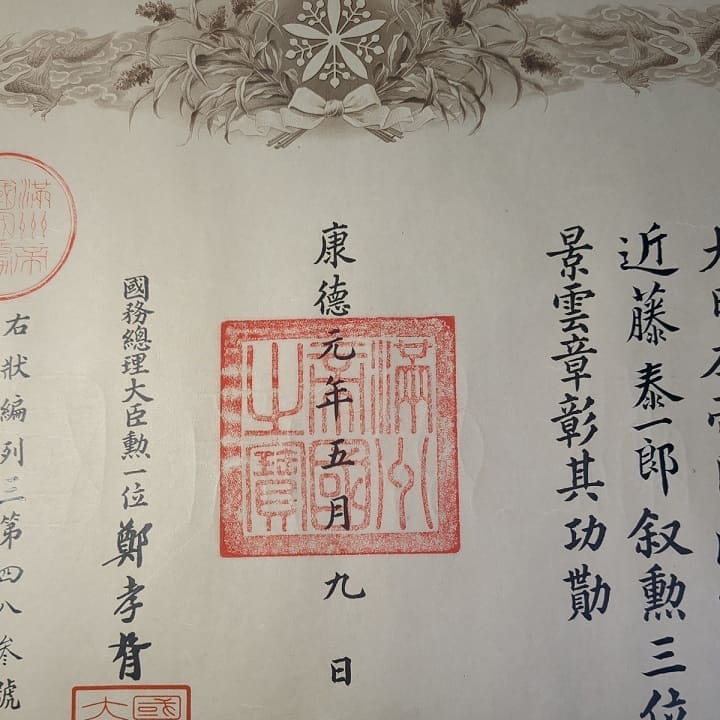 大日本
近藤泰一郎叙勲三位
景雲章彰其功勩
康德元年五月九日
滿州
帝國
之寶
國務總理大臣勲一位鄭孝胥
國
大
右狀編列三第四八参號